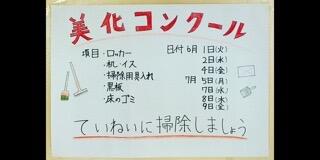 美化コンクール
項目・ロッカー 日付 6月 1日(火)
・机・イス 2日(水)
・掃除用具入れ 4日(金)
・黒板 7月 5日(月)
・床のゴミ 7日(水)
8日(木)
9日(金)
ていねいに掃除しましょう